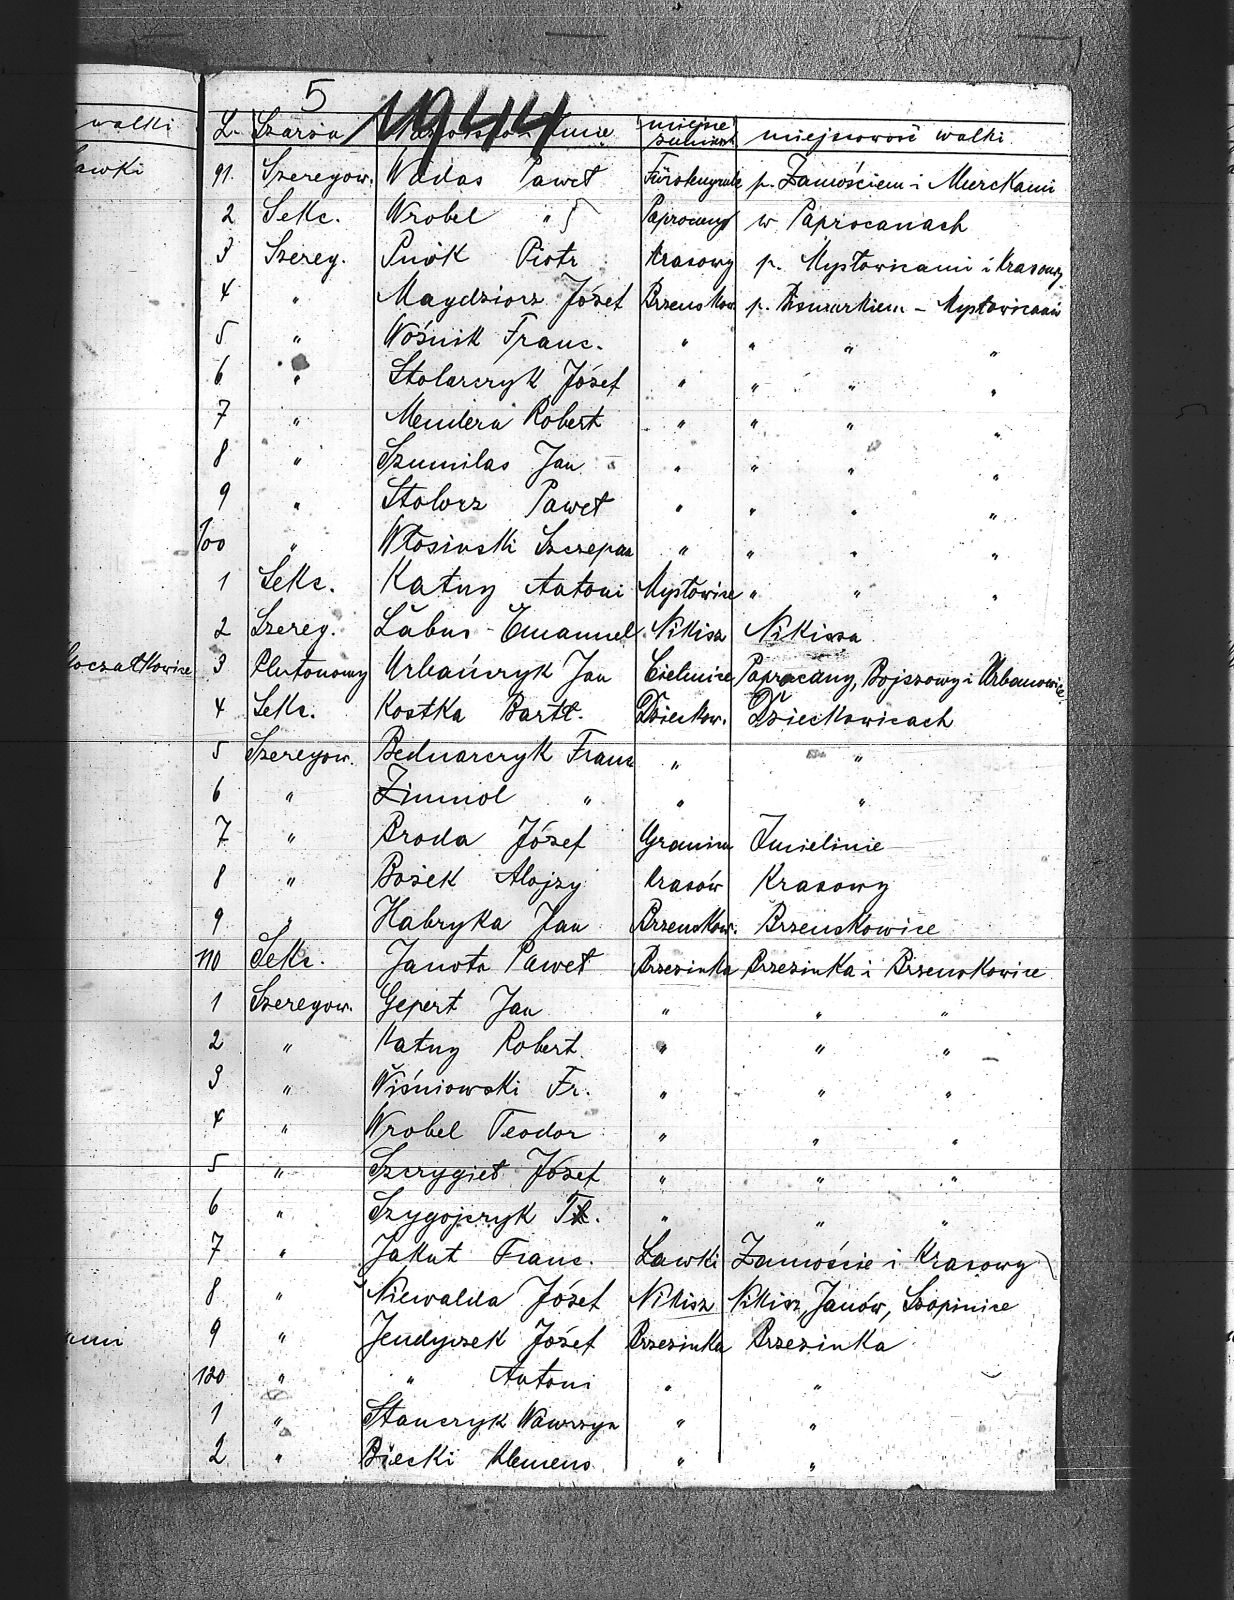 5
1944
walki L. Szarża Nazwisko i Imię miejsce zamieszk miejscowość walki
awki 91. Szeregow. Wadas Paweł Fürstengrube p. Zamościem i Murckami
2 Sekc. Wrobel " Paprocany w Paprocanach
3 Szereg. Pniok Piotr Krasowy p. Mysłowicami i Krasowy
4 " Maydziorz Józef Brzenskow. p. Bismarkiem - Mysłowicami
5 " Wośnik Franc. " " " "
6 " Stolarczyk Józef " " " "
7 " Mendera Robert " " " "
8 " Szumilas Jan " " " "
9 " Stolorz Paweł " " " "
100 " Włosinski Szczepan " " " "
1 Sekc. Katny Antoni Mysłowice " " "
2 Szereg. Labus Emanuel Nikisz Nikisza
Koczatkowice 3 Plutonowy Urbańczyk Jan Cielmice Paprocany, Bojszowy i Urbanowice
4 Sekc. Kostka Bartł. Dzieckow. Dzieckowicach
5 Szeregow. Bednarczyk Franc " "
6 " Zimnol " " "
7 " Broda Józef Granice Imielinie
8 " Bożek Alojzy Krasów Krasowy
9 " Habryka Jan Brzenskow. Brzenskowice
110 Sekc. Janota Paweł Brzezinka Brzezinka i Brzenskowice
1 Szeregow. Gepert Jan " " "
2 " Katny Robert " " "
3 " Wiśniowski Fr. " " "
4 " Wrobel Teodor " " "
5 " Szczygieł Józef " " "
6 " Szygojczyk " " "
7 " Jakut Franc. Ławki Zamoście i Krasowy
8 " Niewalda Józef Nikisz Nikisz, Janów, Szopinice
9 " Jendyczek Józef Brzezinka Brzezinka
120 " " Antoni " "
1 " Stanczyk Wawrzyn " "
2 " Biecki Klemens " "